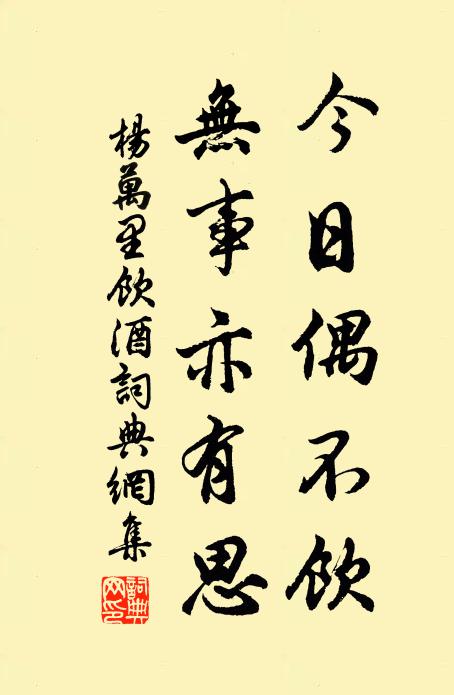 今日偶不飲
無事亦有思
楊萬里飲酒詞典網集
詞典網印